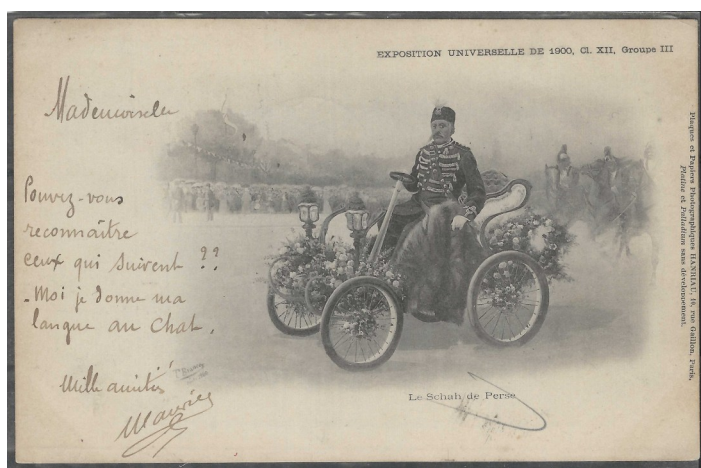 EXPOSITION UNIVERSELLE DE 1900, Cl. XII, Groupe III
Mademoiselle
Pouvez-vous
reconnaître
ceux qui suivent ??
- Moi je donne ma
langue au Chat.
Mille amitiés
Maurice
Le Schah de Perse
Plaques et Papiers Photographiques HANRIAU, 10, rue Gaillon, Paris.
Platine et Palladium sans développement.